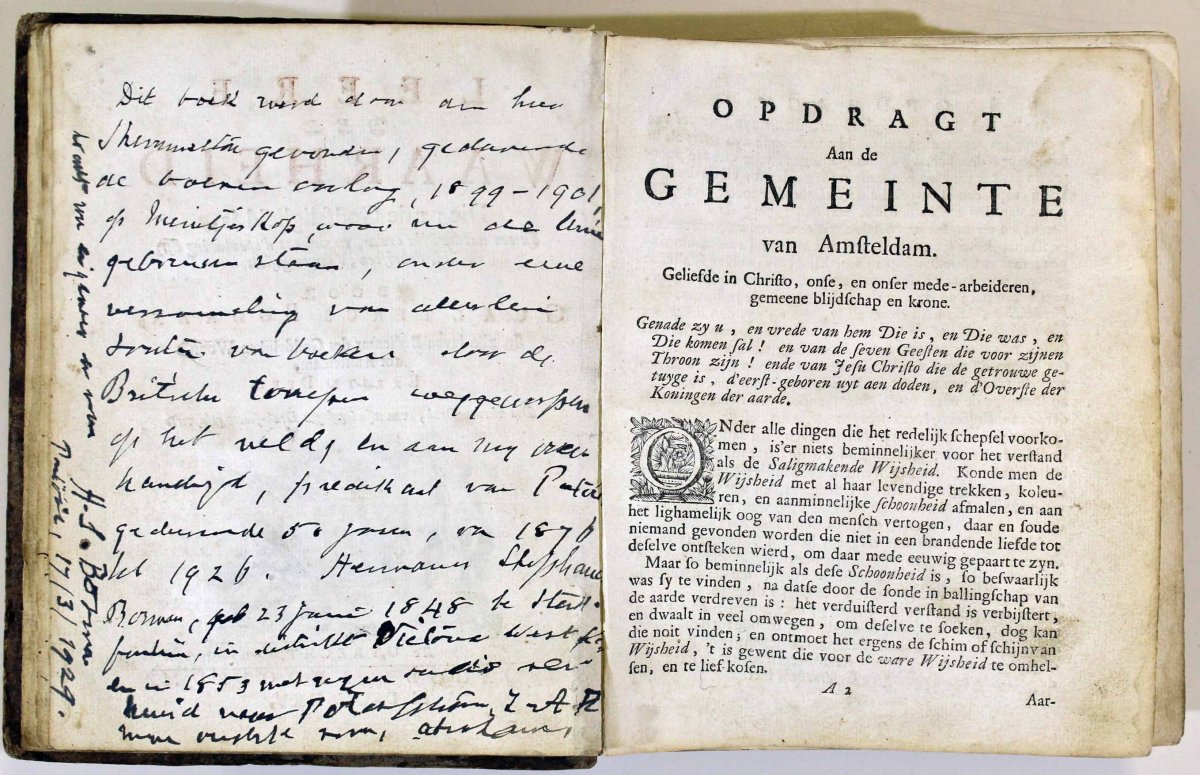 Dit boek werd door den heer
gevonden, gedurende
de boeren oorlog, 1899-1901,
op Meintjeskop, waar nu de Unie
gebouwen staan, onder eene
verzameling van allerlei
soorten van boeken door de
Britsche troepen weggeworpen
op het veld, en aan my over
handigd, predikant van
gedurende 50 jaren, van 1876
tot 1926. Hermanus Stephanus
Bosman, geb 23 Juni 1848 te
fontein, in distrikt Victoria West
en in 1853 met
naar Potchefstroom, Z-A R
oudste
H. S. Bosman
17/3/1929.
OPDRAGT
Aan de
GEMEINTE
van Amſteldam.
Geliefde in Chriſto, onſe, en onſer mede-arbeideren,
gemeene blijdſchap en krone.
Genade zy u, en vrede van hem Die is, en Die was, en
Die komen ſal! en van de ſeven Geeſten die voor zijnen
Throon zijn! ende van Jeſu Chriſto die de getrouwe ge-
tuyge is, d'eerſt-geboren uyt den doden, en d'Overſte der
Koningen der aarde.
ONder alle dingen die het redelijk ſchepſel voorko-
men, is'er niets beminnelijker voor het verſtand
als de Saligmakende Wijsheid. Konde men de
Wijsheid met al haar levendige trekken, koleu-
ren, en aanminnelijke ſchoonheid afmalen, en aan
het lighamelijk oog van den menſch vertogen, daar en ſoude
niemand gevonden worden die niet in een brandende liefde tot
deſelve ontſteken wierd, om daar mede eeuwig gepaart te zyn.
Maar ſo beminnelijk als deſe Schoonheid is, ſo beſwaarlijk
was ſy te vinden, na datſe door de ſonde in ballingſchap van
de aarde verdreven is: het verduiſterd verſtand is verbijſtert,
en dwaalt in veel omwegen, om deſelve te ſoeken, dog kan
die noit vinden; en ontmoet het ergens de ſchim of ſchijn van
Wijsheid, 't is gewent die voor de ware Wijsheid te omhel-
ſen, en te lief-koſen.
A 2
Aar-